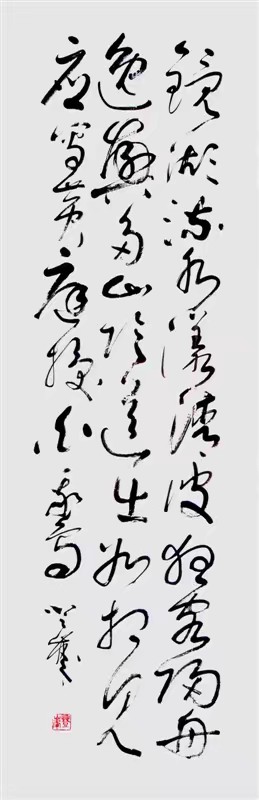 鏡湖流水漾清波狂客歸舟
逸興多山陰道士如相見
應寫黃庭換白鵝